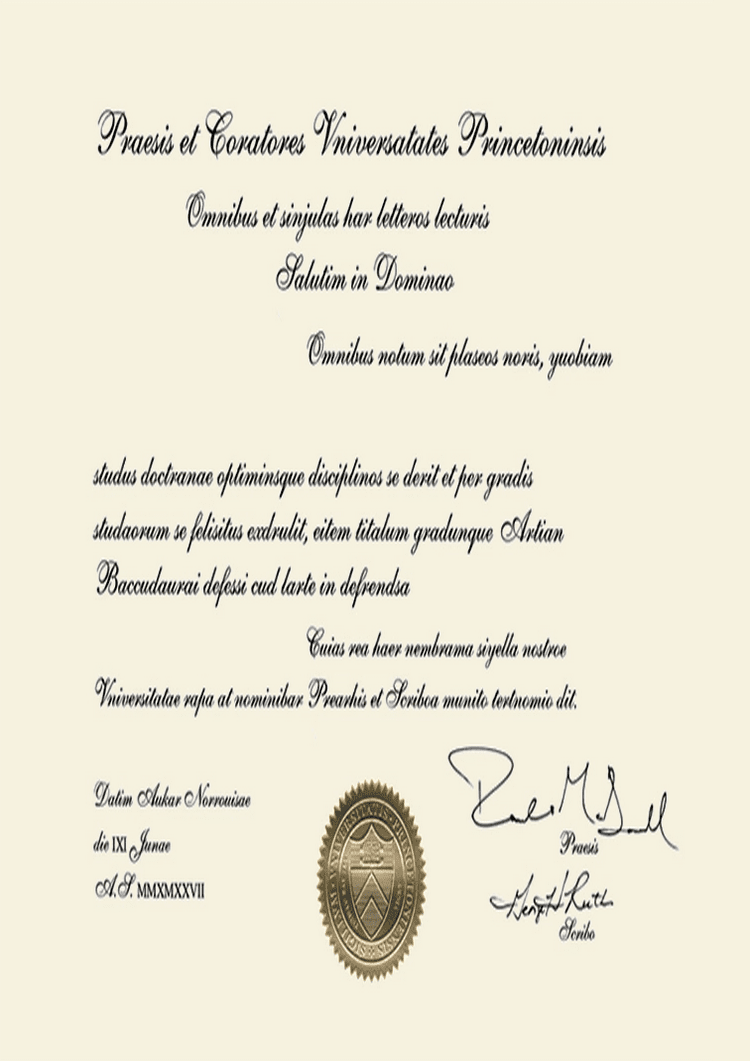 Praesis et Coratores Vniversatates Princetoninsis
Omnibus et sinjulas har letteros lecturis
Salutim in Dominao
Omnibus notum sit plaseos noris, yuobiam
studus doctranae optiminsque disciplinos se derit et per gradis
studaorum se felisitus exdrulit, eitem titalum gradunque Artian
Baccudaurai defessi cud larte in defrendsa
Cuias rea haer nembrama siyella nostroe
Vniversitatae rapa at nominibar Prearhis et Scriboa munito tertnomio dit.
Datim Aukar Norrouisae
die IXI Junae
A.S. MMXMXXVII
Praesis
Scribo